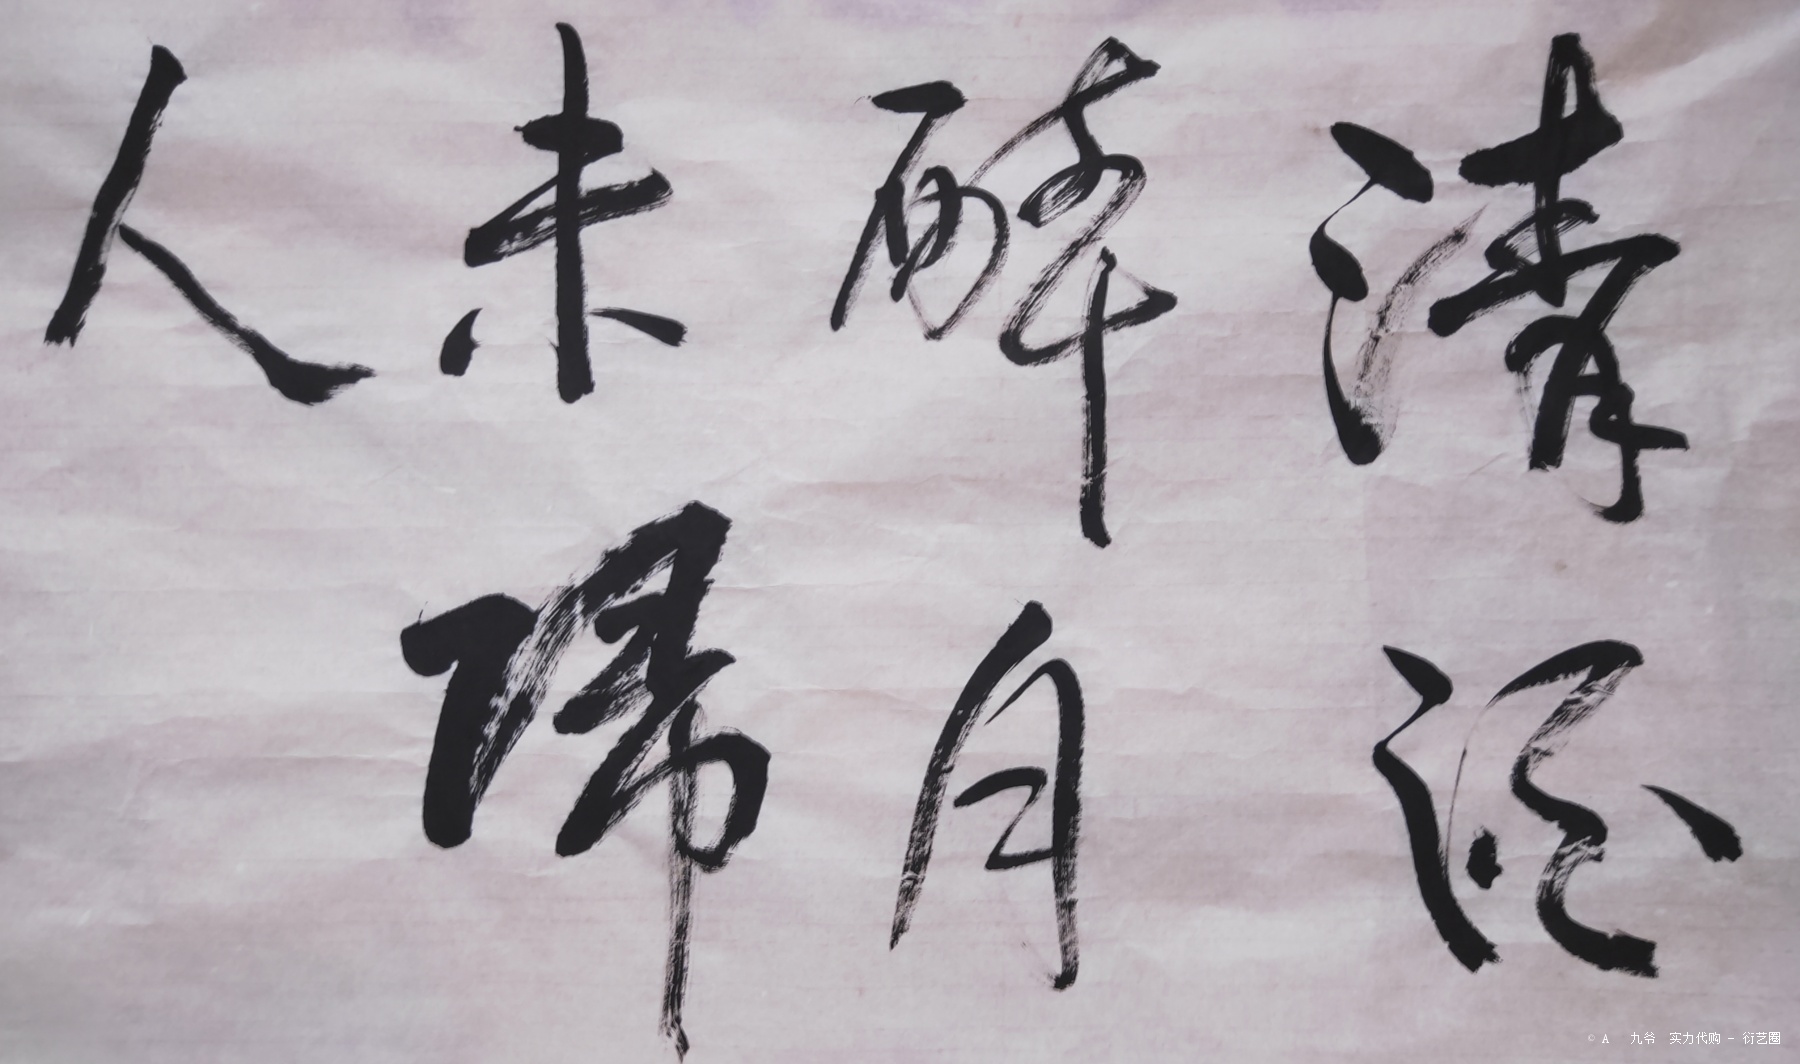 清
醉月
未歸
人
© A 九爷 实力代购 - 衍艺圈